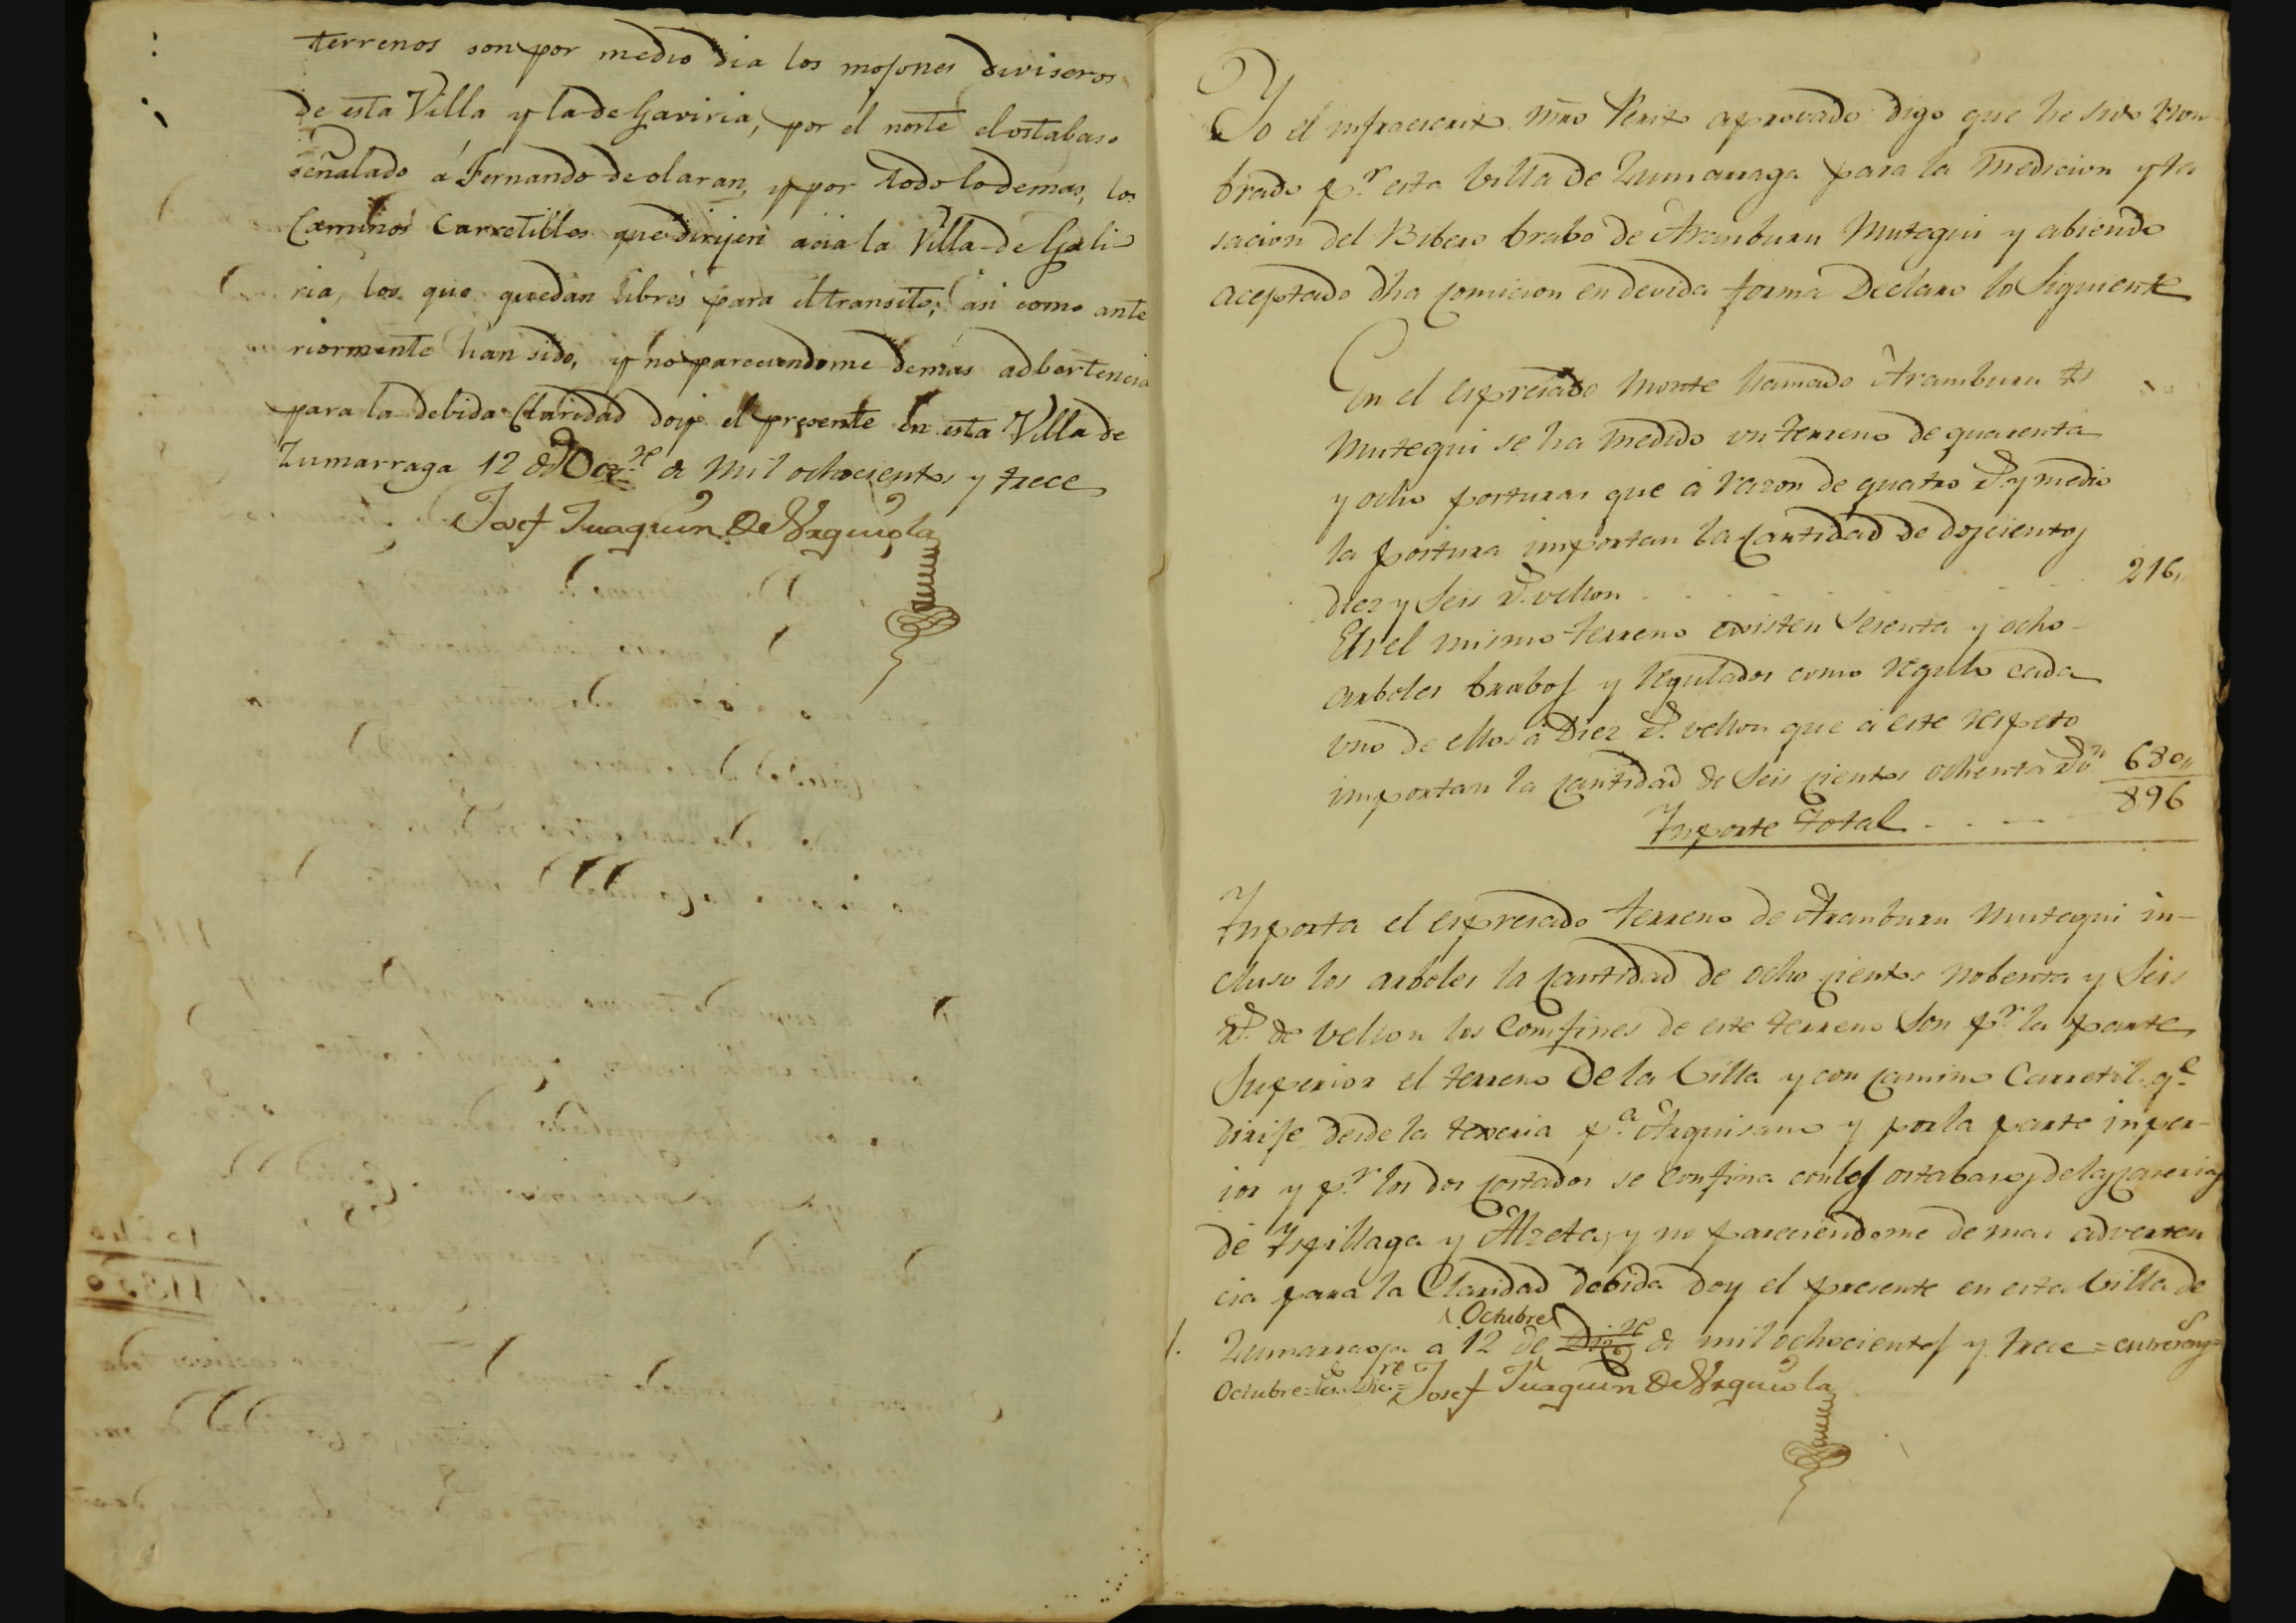 terrenos son por medio dia los mojones diviseros
de esta Villa y la de Gaviria, por el norte el ostabaso
señalado á Fernando de olaran, y por todo lo demas, los
Caminos Carretilles que dirijen acia la Villa de Gabi-
ria, los que quedan libres para el transito, asi como ante
riormente han sido, y no pareciendome demas adbertencia
para la debida Claridad doy el presente en esta Villa de
Zumarraga 12 de de Mil ochocientos y trece
Josef Juaquin de Urguiola
Yo el infraescrito Mro Perito aprovado digo que he sido Nom
brado pr. esta billa de Zumarraga para la Medicion y ta
sacion del Bibero brabo de Aramburu Mutegui y abiendo
aceptado dha comicion en devida forma Declaro lo Siguiente
En el espresado Monte llamado Aramburu
Mutegui se ha medido un terreno de quarenta
y ocho posturas que á razon de quatro Rs. y medio
la postura importan la Cantidad de doscientos
diez y Seis Rs. vellon . . . . . 216,,
En el mismo terreno existen Sesenta y ocho
arboles brabos y regulados como regulo cada
uno de ellos á Diez Rs. vellon que á este respeto
importan la Cantidad de Seis cientos ochenta Rs. vn 680,,
Inporte total . . . . . 896
Inporta el espresado terreno de Aranburu Mutegui in-
cluso los arboles la Cantidad de ocho cientos nobenta y Seis
Rs. de vellon los Comfines de este terreno Son pr. la parte
Superior el terreno De la billa y con camino Carretil qe.
dirije desde la texeria pa. Arguisano y por la parte infer-
ior y pr. los dos costados se confina con los ostabasos de las caserias
de Ypillaga y Alzeta, y no pareciendome demas adverten
cia para la Claridad debida doy el presente en esta billa de
Octubre
Zumarraga a 12 de Dice. de mil ochocientos y trece =
Octubre = Dice. = Josef Juaquin de Urguiola